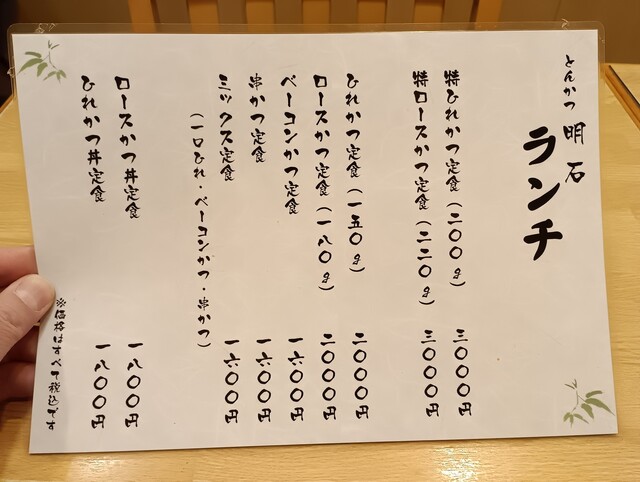 とんかつ 明石
ランチ
特ひれかつ定食(二〇〇g) 三〇〇〇円
特ロースかつ定食(二二〇g) 三〇〇〇円
ひれかつ定食(一五〇g) 二〇〇〇円
ロースかつ定食(一八〇g) 二〇〇〇円
ベーコンかつ定食 一六〇〇円
串かつ定食 一六〇〇円
ミックス定食 一六〇〇円
(一口ひれ・ベーコンかつ・串かつ)
ロースかつ丼定食 一八〇〇円
ひれかつ丼定食 一八〇〇円
※価格はすべて税込です